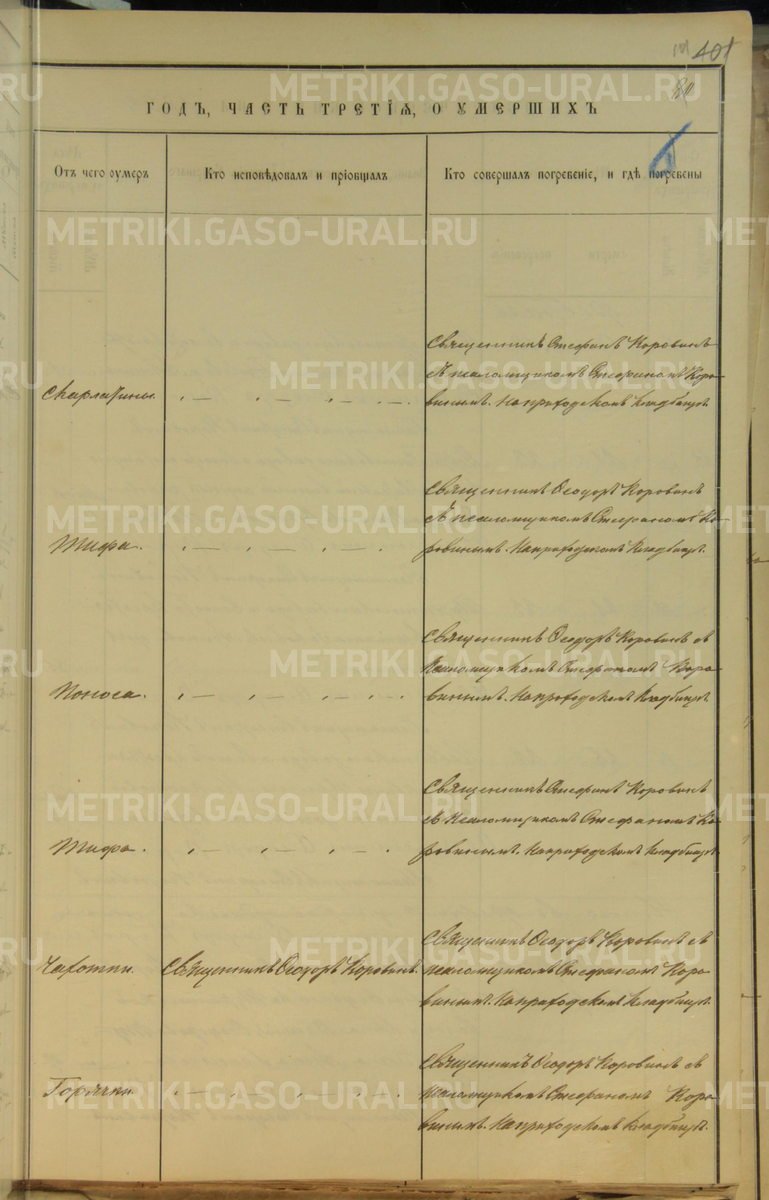 401
80
ГОДЪ, ЧАСТЬ ТРЕТІЯ, О УМЕРШИХЪ
Отъ чего оумеръ
Кто исповѣдовалъ и пріобщалъ
Кто совершалъ погребеніе, и гдѣ погребены
Священникъ Стефанъ Коровинъ
съ псаломщикомъ Стефаномъ Коро-
Скарлатины
винымъ. На приходскомъ кладбищѣ.
Священникъ Ѳеодоръ Коровинъ
съ псаломщикомъ Стефаномъ Ко-
Тифа.
ровинымъ. На приходскомъ кладбищѣ.
Священникъ Ѳеодоръ Коровинъ съ
псаломщикомъ Стефаномъ Коро-
Поноса.
винымъ. На приходскомъ кладбищѣ.
Священникъ Стефанъ Коровинъ
съ псаломщикомъ Стефаномъ Ко-
Тифа.
ровинымъ. На приходскомъ кладбищѣ.
Священникъ Ѳеодоръ Коровинъ съ
Чахотки. Священникъ Ѳеодоръ Коровинъ. псаломщикомъ Стефаномъ Коро-
винымъ. На приходскомъ кладбищѣ.
Священникъ Ѳеодоръ Коровинъ съ
Горячки. псаломщикомъ Стефаномъ Коро-
винымъ. На приходскомъ кладбищѣ.
METRIKI.GASO-URAL.RU